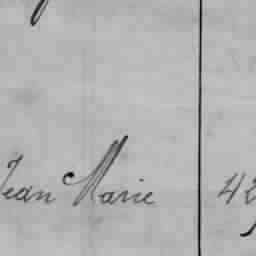 Jean Marie 42